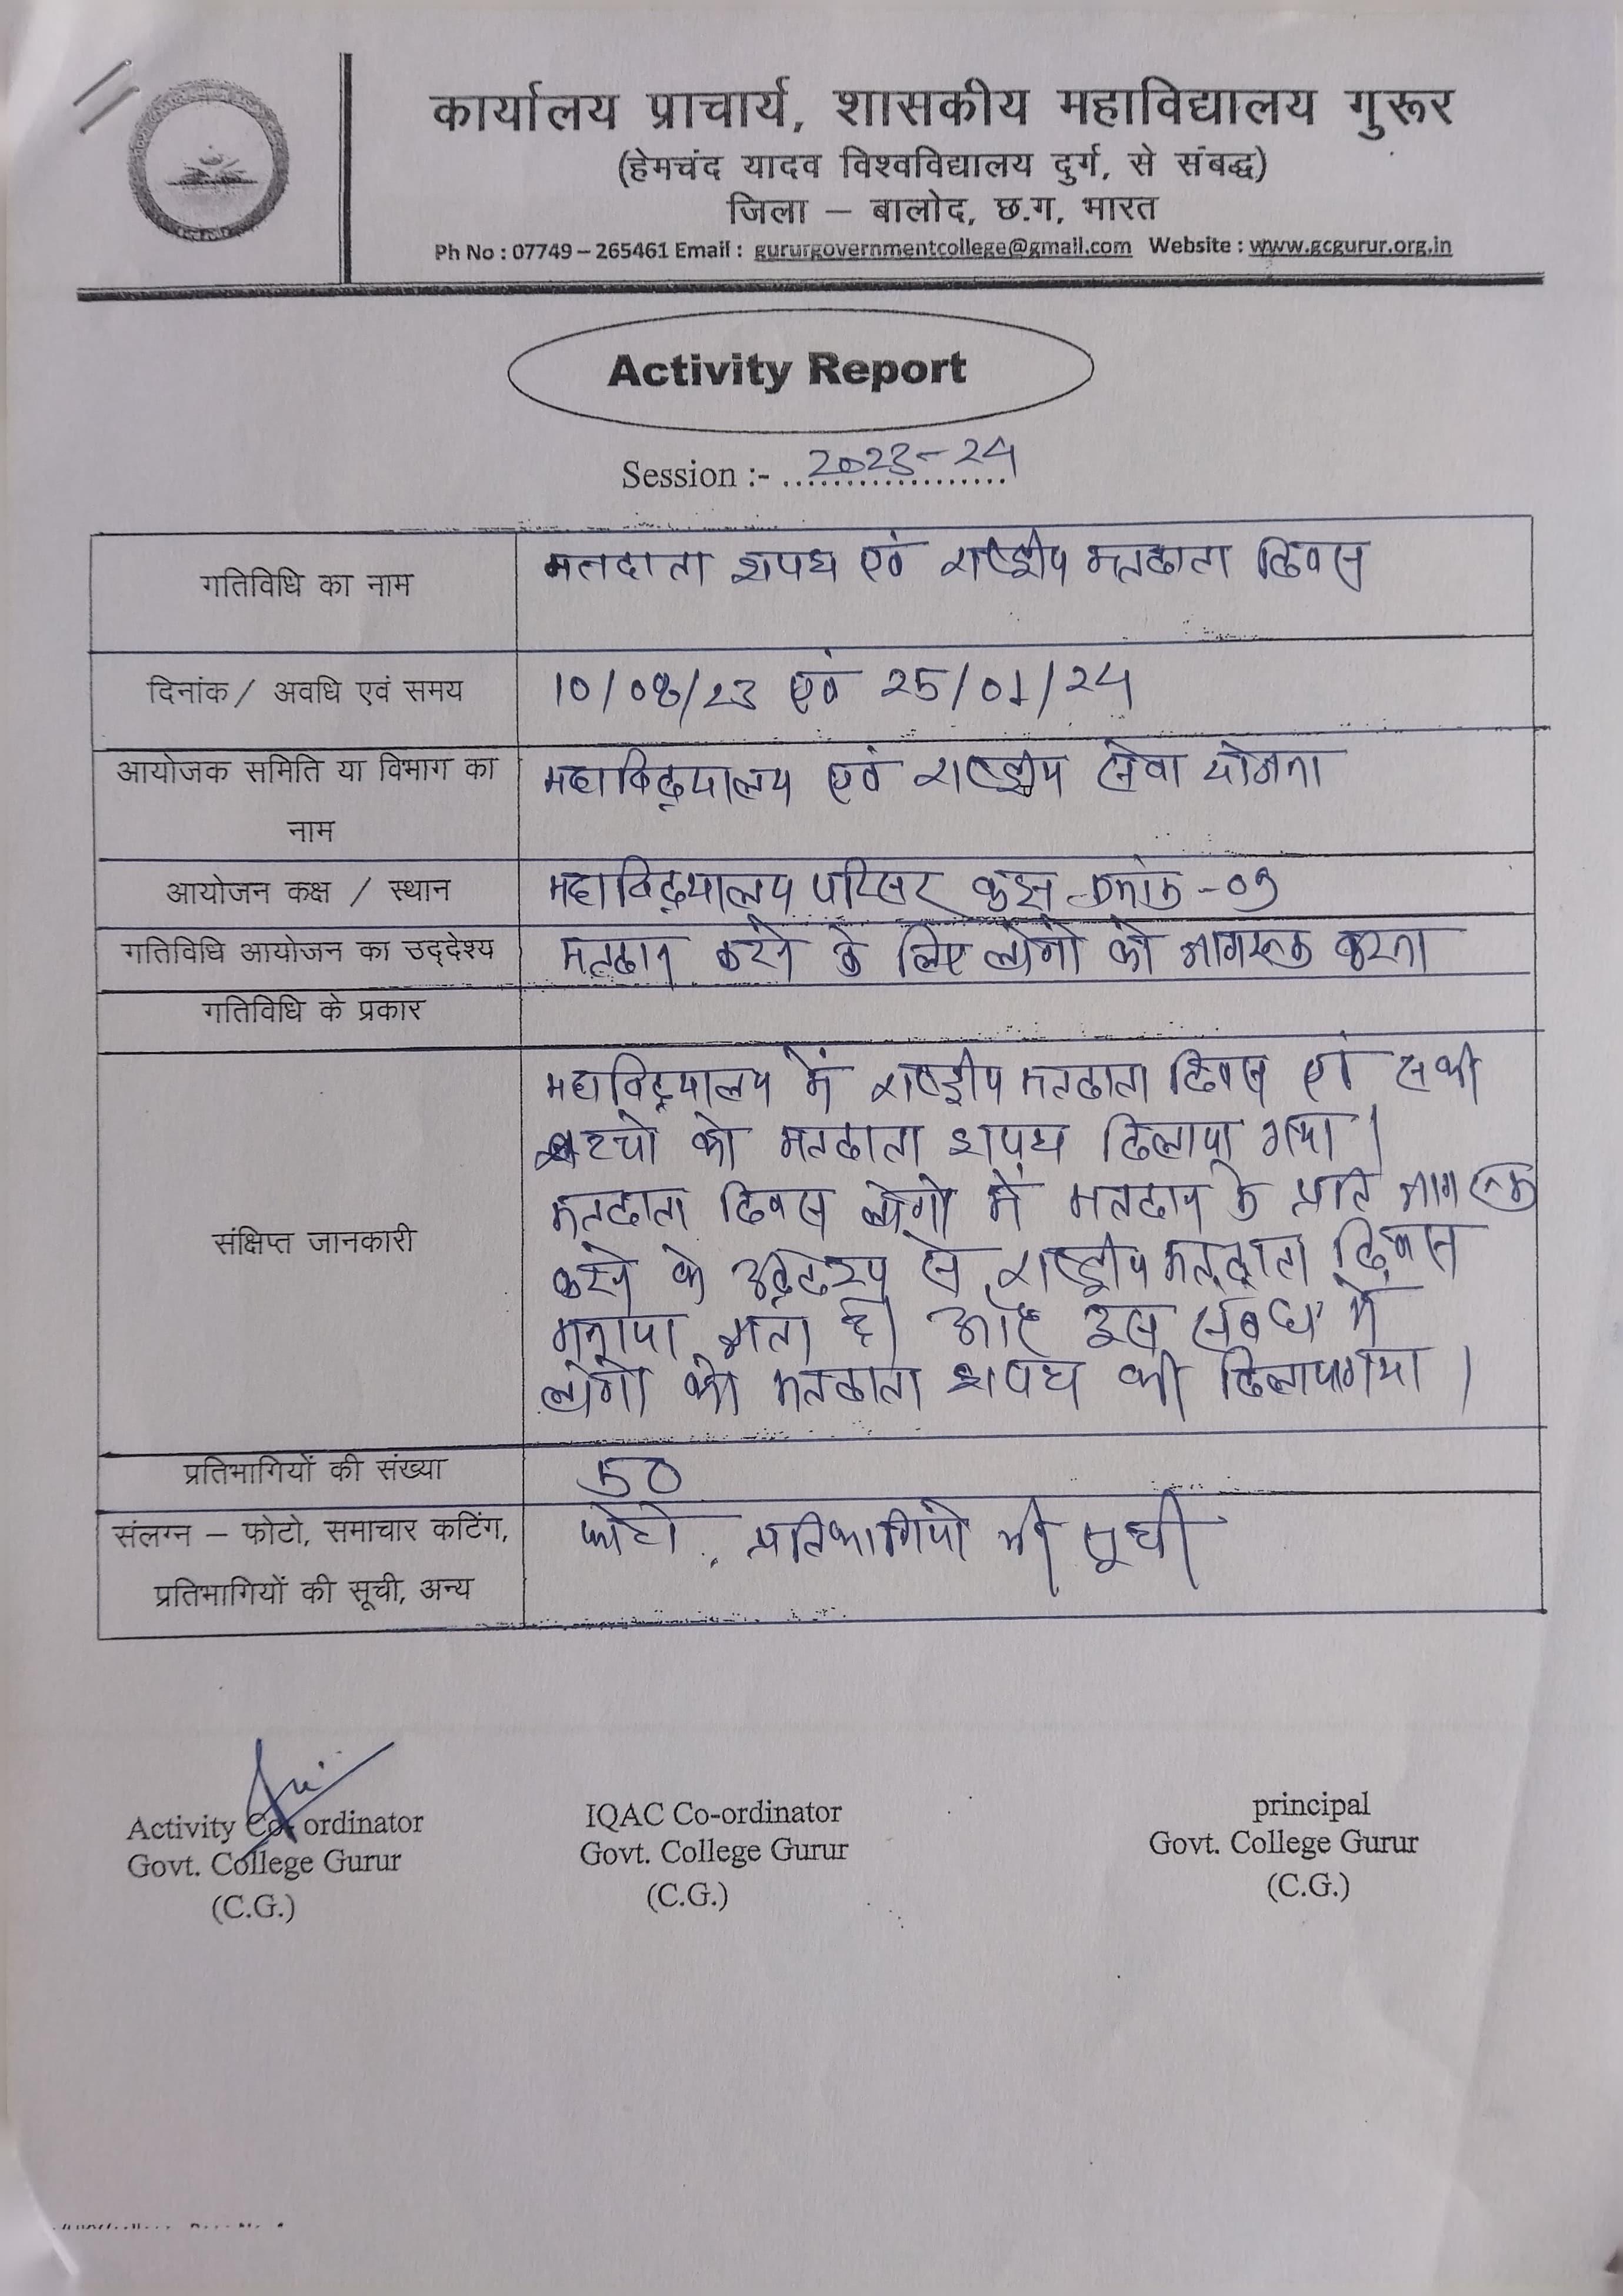 कार्यालय प्राचार्य, शासकीय महाविद्यालय गुरूर
(हेमचंद यादव विश्वविद्यालय दुर्ग, से संबद्ध)
जिला – बालोद, छ.ग, भारत
Ph No : 07749 – 265461 Email : gururgovernmentcollege@gmail.com Website : www.gcgurur.org.in
Activity Report
Session :- 2023-24
गतिविधि का नाम
मतदाता शपथ एवं राष्ट्रीय मतदाता दिवस
दिनांक / अवधि एवं समय
10/08/23 एवं 25/01/24
आयोजक समिति या विभाग का
नाम
महाविद्यालय एवं राष्ट्रीय सेवा योजना
आयोजन कक्ष / स्थान
महाविद्यालय परिसर कक्ष क्रमांक -09
गतिविधि आयोजन का उद्देश्य
मतदान करने के लिए लोगो को जागरूक करना
गतिविधि के प्रकार
संक्षिप्त जानकारी
महाविद्यालय में राष्ट्रीय मतदाता दिवस एवं सभी
बच्चो को मतदाता शपथ दिलाया गया।
मतदाता दिवस लोगो में मतदान के प्रति जागरूक
करने के उद्देश्य से राष्ट्रीय मतदाता दिवस
मनाया जाता है। और इस संबंध में
लोगो को मतदाता शपथ भी दिलाया गया।
प्रतिभागियों की संख्या
50
संलग्न – फोटो, समाचार कटिंग,
प्रतिभागियों की सूची, अन्य
फोटो, प्रतिभागियो की सूची
Activity Co-ordinator
Govt. College Gurur
(C.G.)
IQAC Co-ordinator
Govt. College Gurur
(C.G.)
principal
Govt. College Gurur
(C.G.)